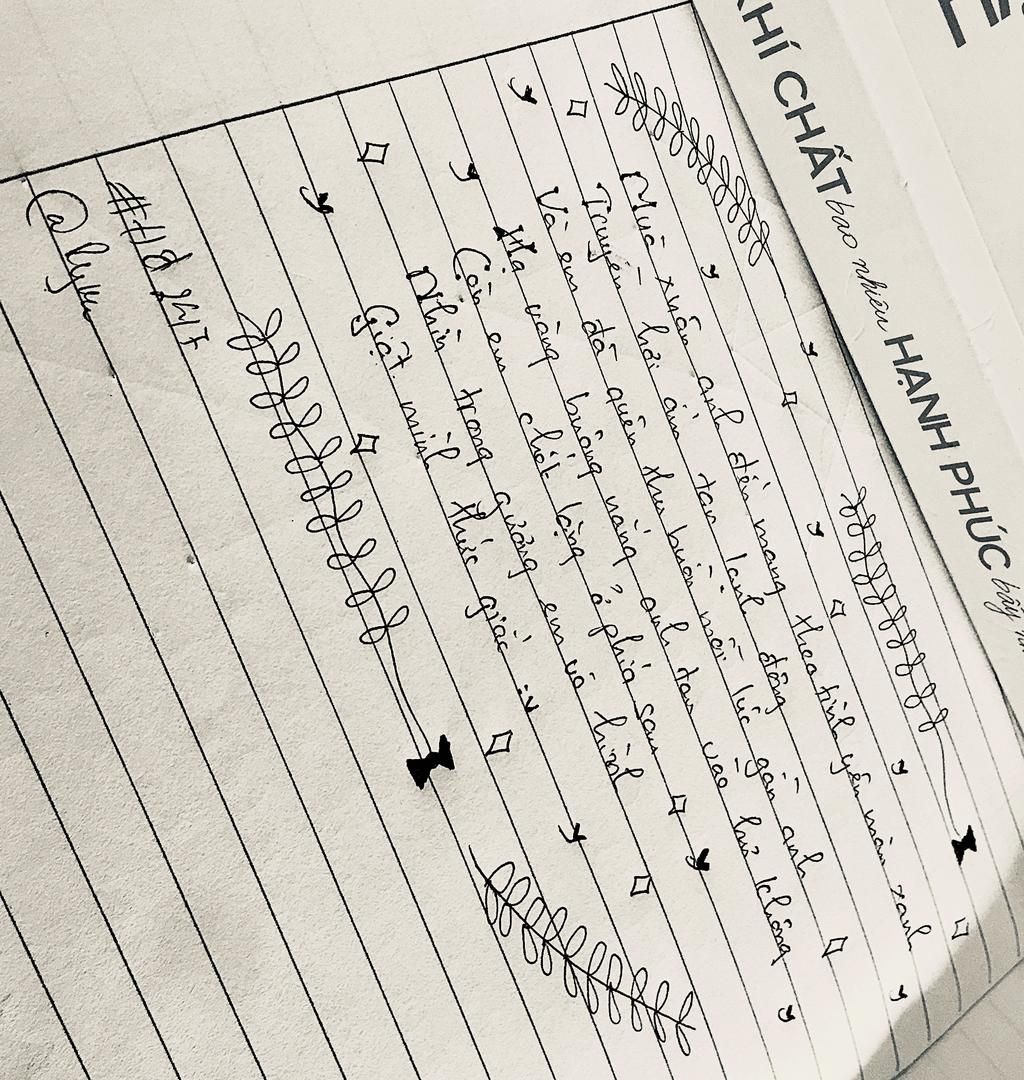 KHÍ CHẤT bao nhiêu HẠNH PHÚC bấy
Mùa xuân anh đến mang theo tình yêu màu xanh
Truyện hơi ấm tan lạnh đông
Và em đã quên thu buồn mỗi lúc gần anh
Hạ vàng buông nắng anh tan vào hư không
Còn em chết lặng ở phía sau
Nhìn trong gương em và hình
Giật mình thức giấc :v
#Hd 247